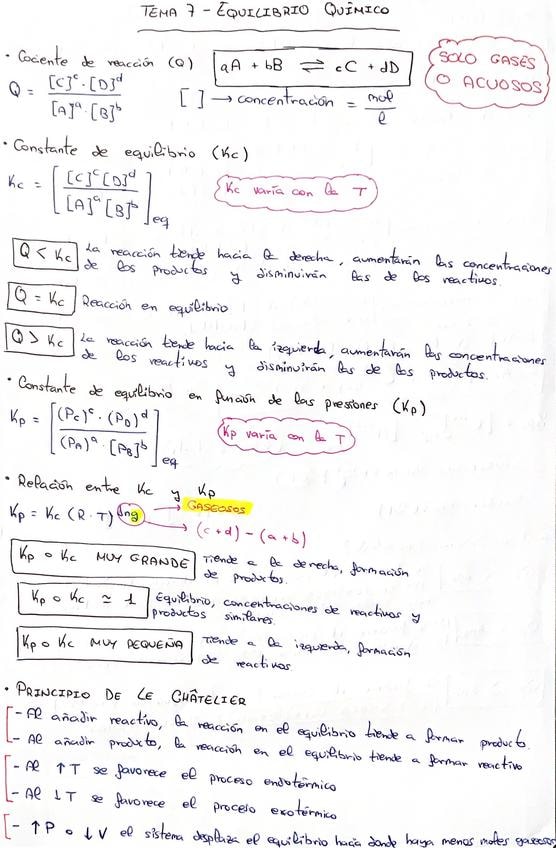 TEMA 7 - EQUILIBRIO QUÍMICO
· Cociente de reacción (Q)
aA + bB ⇌ cC + dD
SOLO GASES
O ACUOSOS
Q = [C]^c · [D]^d / [A]^a · [B]^b
[ ] → concentración = mol / l
· Constante de equilibrio (Kc)
Kc = [ [C]^c [D]^d / [A]^a [B]^b ]eq
Kc varía con la T
Q < Kc La reacción tiende hacia la derecha, aumentarán las concentraciones
de los productos y disminuirán las de los reactivos.
Q = Kc Reacción en equilibrio
Q > Kc La reacción tiende hacia la izquierda, aumentarán las concentraciones
de los reactivos y disminuirán las de los productos.
· Constante de equilibrio en función de las presiones (Kp)
Kp = [ (Pc)^c · (PD)^d / (PA)^a · [PB]^b ]eq
Kp varía con la T
· Relación entre Kc y Kp
Kp = Kc (R · T)^Δng → GASEOSOS
→ (c+d) - (a+b)
Kp o Kc MUY GRANDE Tiende a la derecha, formación
de productos.
Kp o Kc ≃ 1 Equilibrio, concentraciones de reactivos y
productos similares.
Kp o Kc MUY PEQUEÑA Tiende a la izquierda, formación
de reactivos
· PRINCIPIO DE LE CHÂTELIER
- Al añadir reactivo, la reacción en el equilibrio tiende a formar producto.
- Al añadir producto, la reacción en el equilibrio tiende a formar reactivo
- Al ↑ T se favorece el proceso endotérmico
- Al ↓ T se favorece el proceso exotérmico
- ↑ P o ↓ V el sistema desplaza el equilibrio hacia donde haya menos moles gaseosos